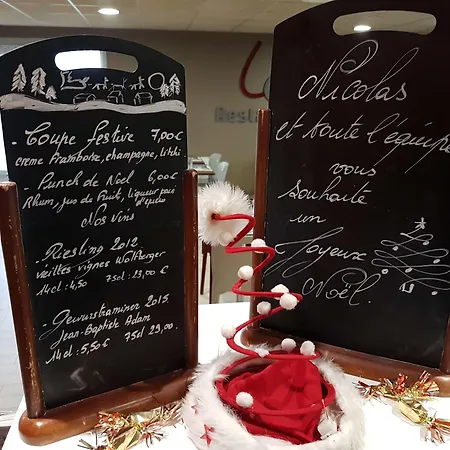 - Coupe festive 7,00€
crème Framboise, champagne, Litchi
- Punch de Noël 6,00€
Rhum, jus de Fruit, liqueur pain d'épices
Nos Vins
- Riesling 2012
vieilles vignes Wolfberger
14cl: 4,50 75cl: 23,00€
- Gewurztraminer 2015
Jean-Baptiste Adam
14cl: 5,50€ 75cl: 29,00.
Nicolas
et toute l'équipe
vous
souhaite
un
Joyeux
Noël.
Resta